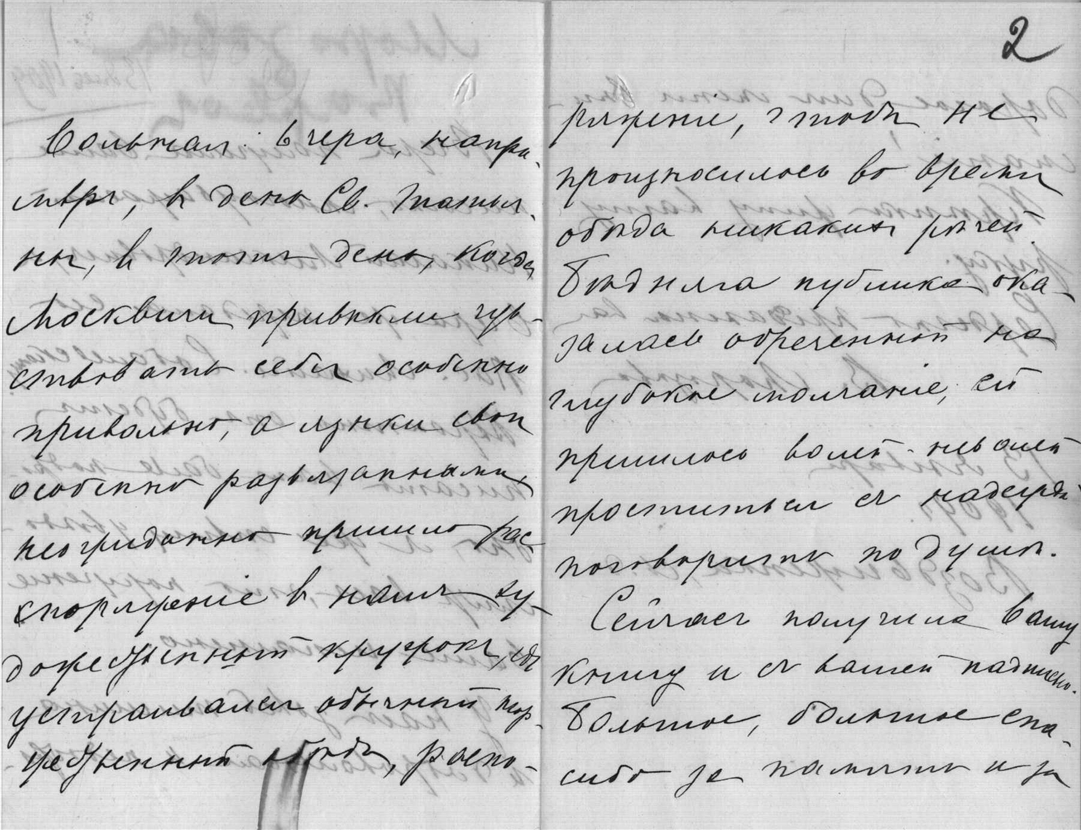 больная. Вчера, напри-
мѣръ, в день Св. Татья-
ны, в тотъ день, когда
Москвичи привыкли чув-
ствовать себя особенно
привольно, а языки свои
особенно развязанными,
неожиданно пришло рас-
споряженіе в нашъ ху-
дожественный кружокъ, гдѣ
устраивался обычный тор-
жественный обѣдъ, распо-
2
ряженіе, чтобы не
произносилось во время
обѣда никакихъ рѣчей.
Бѣдняга публика ока-
залась обреченной на
глубокое молчаніе, ей
пришлось волей-неволей
проститься съ надеждой
поговорить по душѣ.
Сейчасъ получила Вашу
книгу и съ вашей надписью.
Большое, большое спа-
сибо за память и за